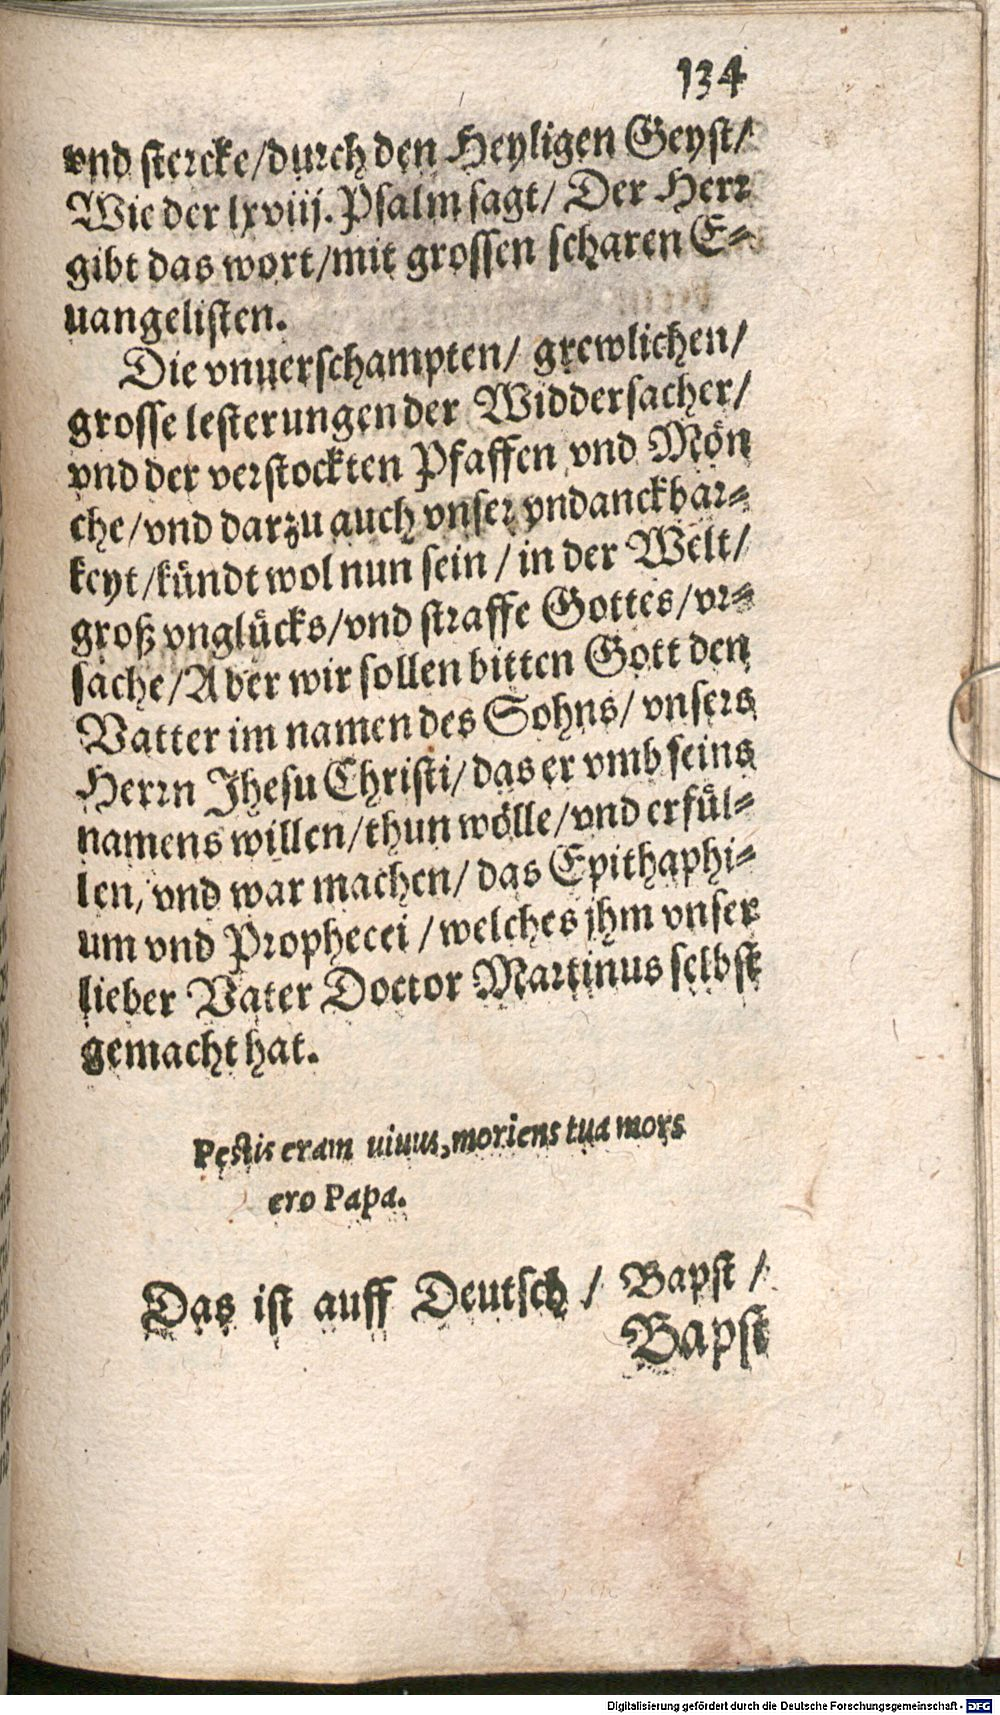 134
vnd stercke/durch den Heyligen Geyst/
Wie der lxviij. Psalm sagt/ Der Herr
gibt das wort/mit grossen scharen E=
uangelisten.
Die vnuerschampten/ grewlichen/
grosse lesterungen der Widdersacher/
vnd der verstockten Pfaffen vnd Mön
che/vnd darzu auch vnser vndanckbar=
keyt/kündt wol nun sein/in der Welt/
groß vnglücks/vnd straffe Gottes/vr=
sache/Aber wir sollen bitten Gott den
Vatter im namen des Sohns/ vnsers
Herrn Jhesu Christi/das er vmb seins
namens willen/thun wölle/vnd erfül=
len/ vnd war machen/ das Epithaphi=
um vnd Prophecei/welches jhm vnser
lieber Vater Doctor Martinus selbst
gemacht hat.
Pestis eram uiuus, moriens tua mors
ero Papa.
Das ist auff Deutsch/ Bapst/
Bapst
Digitalisierung gefördert durch die Deutsche Forschungsgemeinschaft - DFG